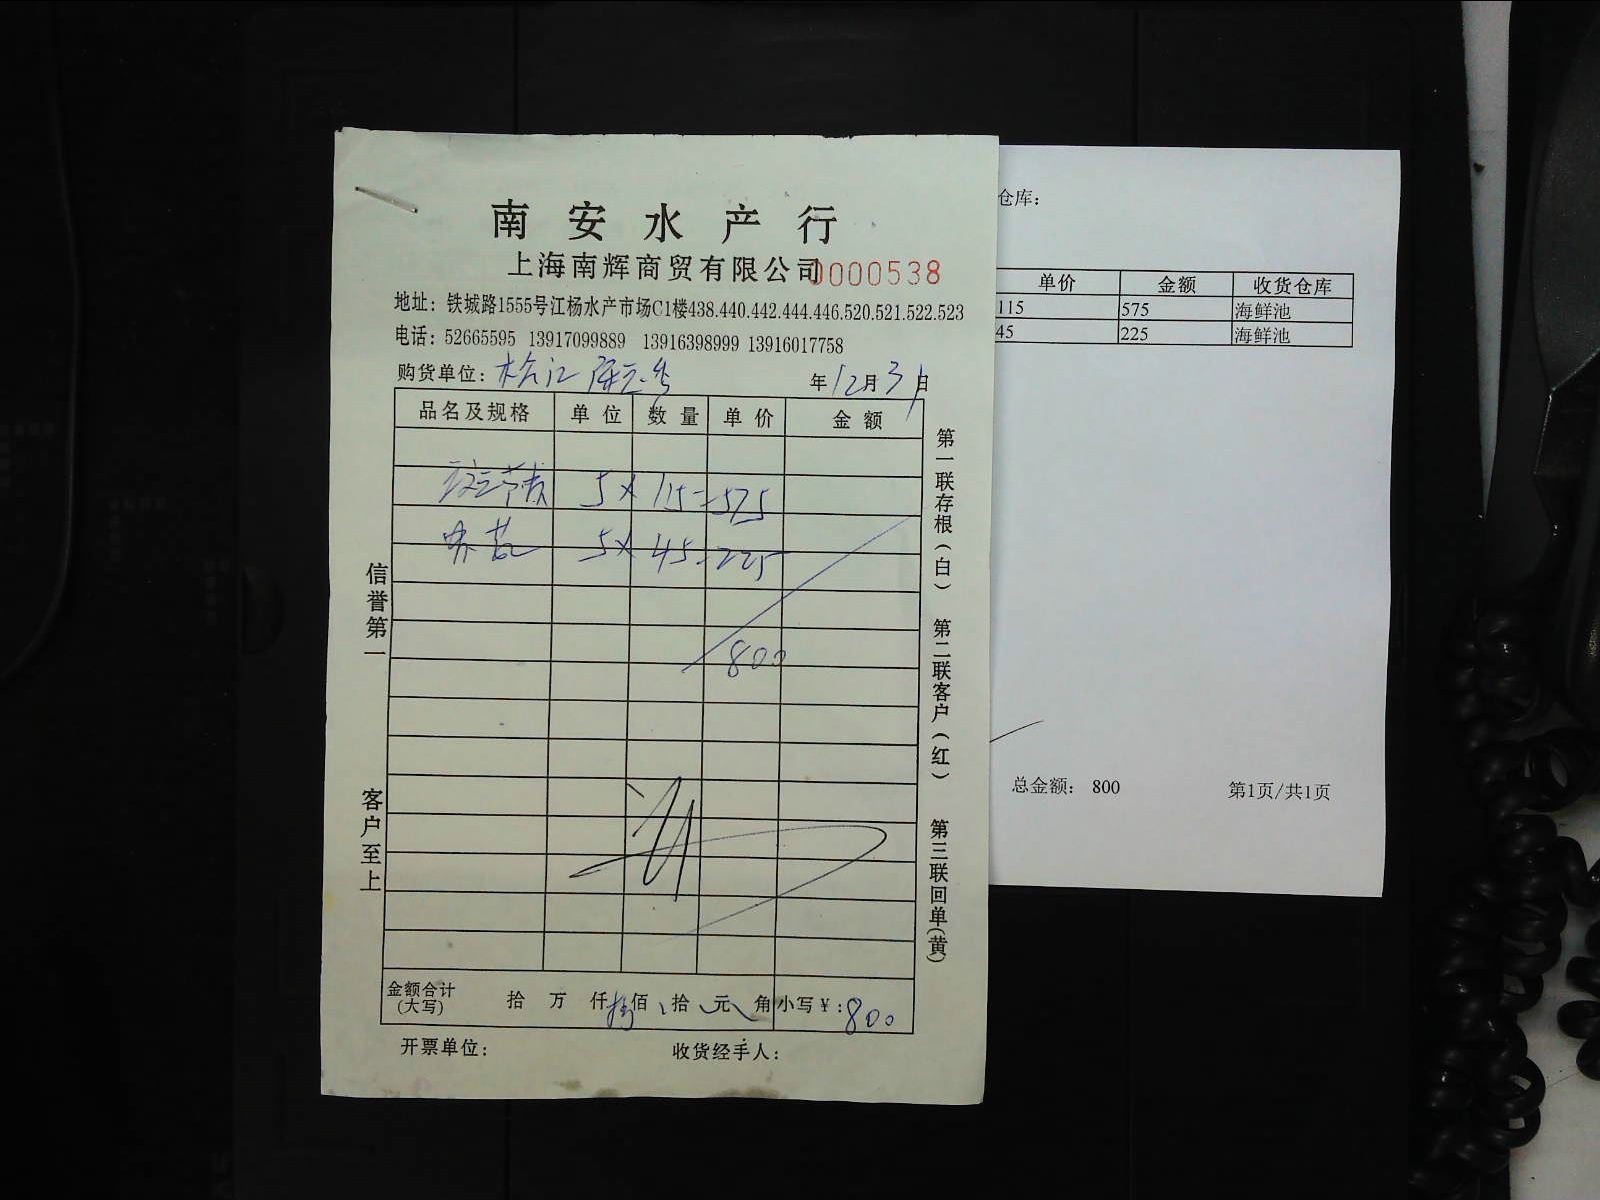 南安水产行
上海南辉商贸有限公司 0000538
地址：铁城路1555号江杨水产市场C1楼438.440.442.444.446.520.521.522.523
电话：52665595 13917099889 13916398999 13916017758
购货单位：松江 年12月31日
品名及规格 单位 数量 单价 金额
5×115=575
5×45=225
800
金额合计(大写) 拾 万 仟 捌佰 拾 元 角 小写¥：800
开票单位： 收货经手人：
信誉第一 客户至上
第一联存根(白) 第二联客户(红) 第三联回单(黄)
仓库：
单价 金额 收货仓库
115 575 海鲜池
45 225 海鲜池
总金额： 800 第1页/共1页